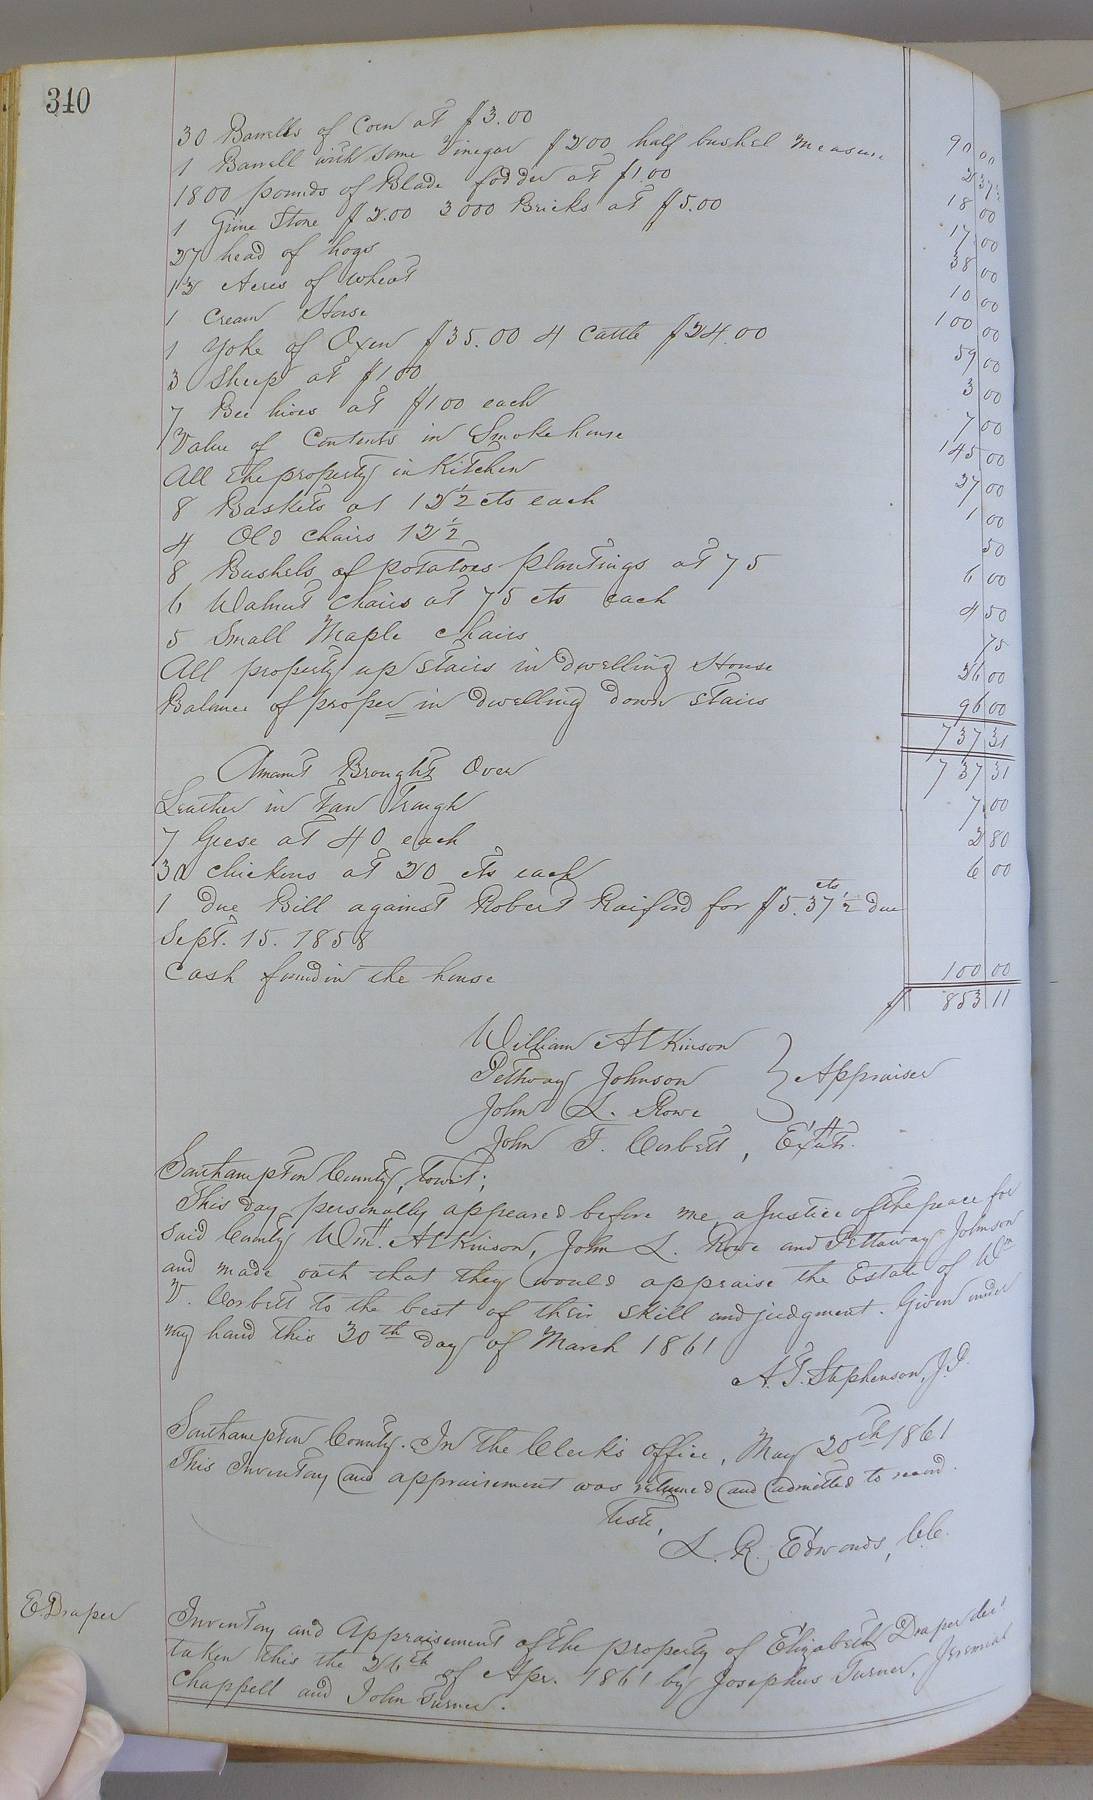 340
30 Barrells of Corn at $3.00 90 00
1 Barrell with some Vinegar $2.00 half bushel measure 2 37½
1800 pounds of Blade fodder at $1.00 18 00
1 Grine Stone $2.00 3000 Bricks at $5.00 17 00
27 head of hogs 38 00
12 Acres of wheat 10 00
1 Cream Horse 100 00
1 Yoke of Oxen $35.00 4 Cattle $24.00 59 00
3 Sheep at $1.00 3 00
7 Bee hives at $1.00 each 7 00
Value of Contents in Smoke house 145 00
All the property in Kitchen 27 00
8 Baskets at 12½ cts each 1 00
4 Old chairs 12½ 50
8 Bushels of potatoes plantings at 75 6 00
6 Walnut Chairs at 75 cts each 4 50
5 Small Maple chairs 75
All property up stairs in dwelling House 36 00
Balance of proper= in dwelling down stairs 96 00
737 31
Amount Brought Over 737 31
Leather in Tan Trough 7 00
7 Geese at 40 each 2 80
30 chickens at 20 cts each 6 00
1 due Bill against Robert Raiford for $5.37½ cts due
Sept. 15. 1858
Cash found in the house 100 00
$ 853 11
William Atkinson
Pethway Johnson } Appraiser
John L. Rowe
John T. Corbett, Extr.
Southampton County, towit;
This day personally appeared before me a Justice of the peace for
said County Wm. Atkinson, John L. Rowe and Pettaway Johnson
and made oath that they would appraise the Estate of Wm
V. Corbett to the best of their skill and judgment. Given under
my hand this 30th day of March 1861
A. T. Stephenson, J.P.
Southampton County. In the Clerk's office, May 20th 1861
This Inventory and appraisement was returned and admitted to record.
Teste,
L. R. Edwards, C.C.
E Draper
Inventory and Appraisement of the property of Elizabeth Draper dec'd
taken this the 26th of Apr. 1861 by Josephus Turner, Jeremiah
Chappell and John Turner.